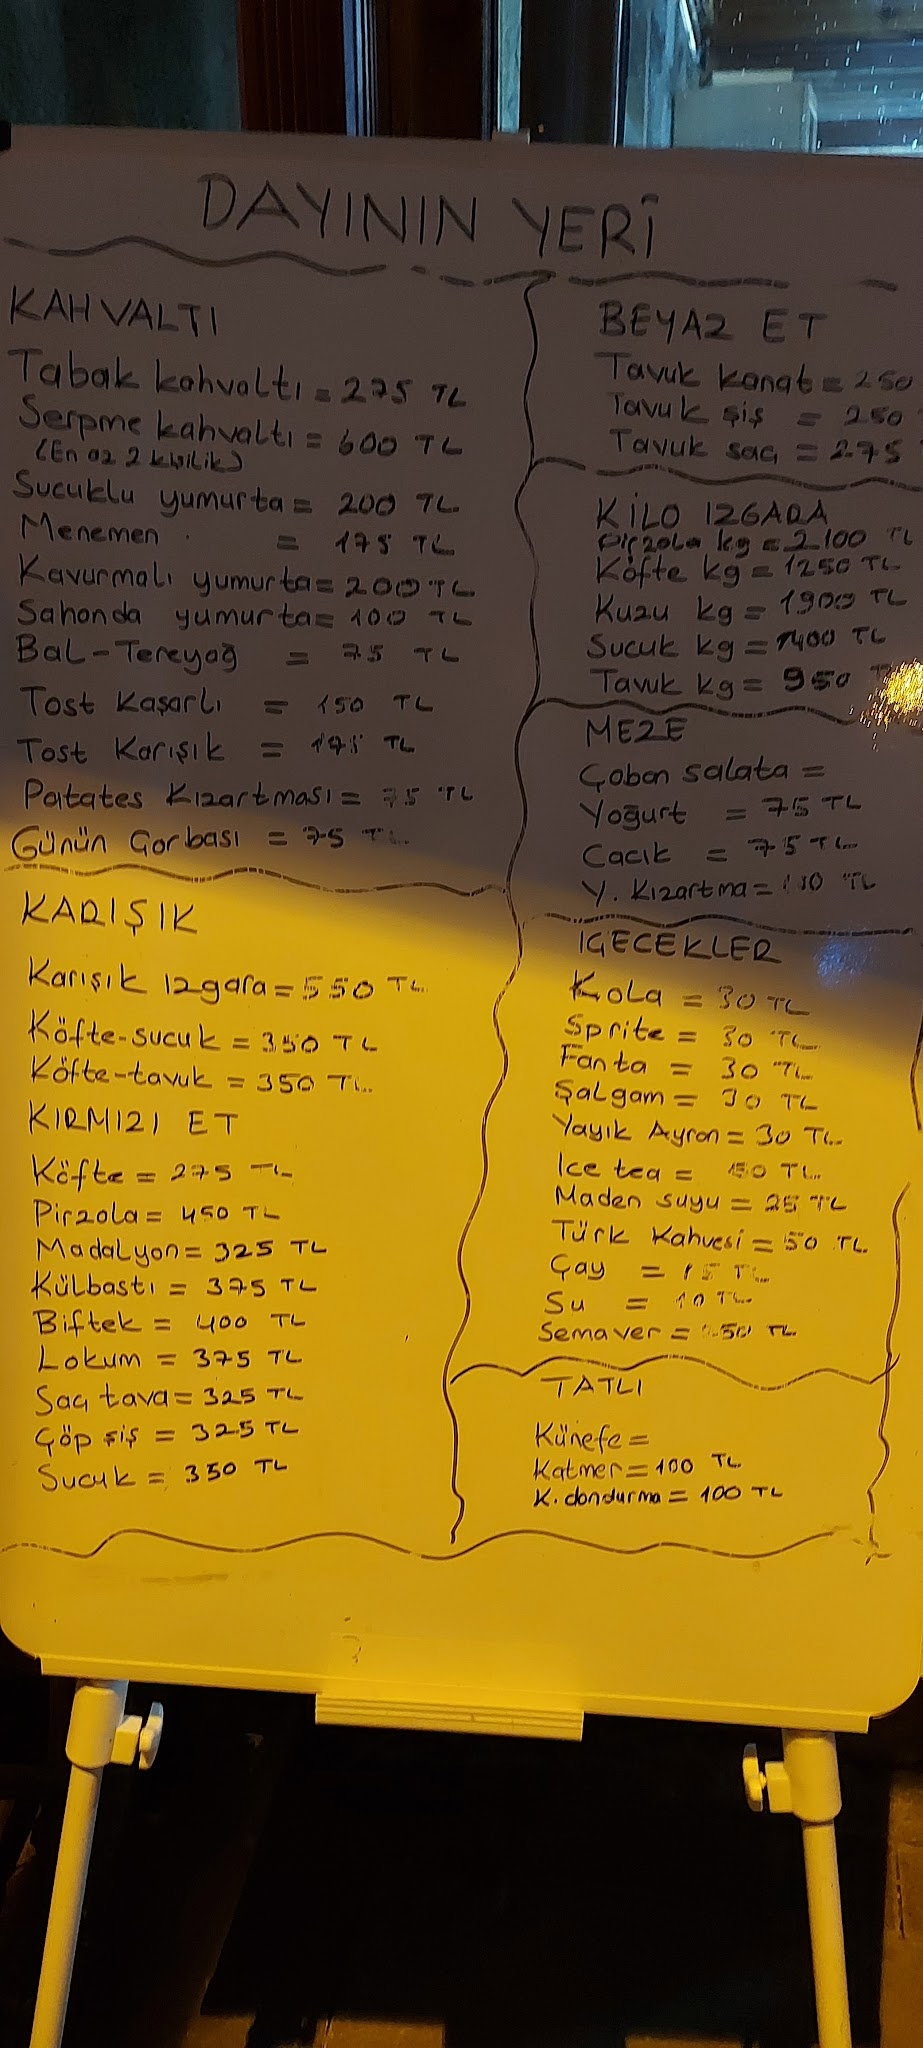 DAYININ YERİ
KAHVALTI
Tabak kahvaltı = 275 TL
Serpme kahvaltı = 600 TL
(En az 2 kişilik)
Sucuklu yumurta = 200 TL
Menemen = 175 TL
Kavurmalı yumurta = 200 TL
Sahanda yumurta = 100 TL
Bal-Tereyağ = 75 TL
Tost Kaşarlı = 150 TL
Tost Karışık = 175 TL
Patates Kızartması = 75 TL
Günün Çorbası = 75 TL
KARIŞIK
Karışık Izgara = 550 TL
Köfte-sucuk = 350 TL
Köfte-tavuk = 350 TL
KIRMIZI ET
Köfte = 275 TL
Pirzola = 450 TL
Madalyon = 325 TL
Külbastı = 375 TL
Biftek = 400 TL
Lokum = 375 TL
Saç tava = 325 TL
Çöp şiş = 325 TL
Sucuk = 350 TL
BEYAZ ET
Tavuk kanat = 250
Tavuk şiş = 250
Tavuk saç = 275
KİLO IZGARA
Pirzola kg = 2100 TL
Köfte kg = 1250 TL
Kuzu kg = 1900 TL
Sucuk kg = 1400 TL
Tavuk kg = 950
MEZE
Çoban salata =
Yoğurt = 75 TL
Cacık = 75 TL
Y. Kızartma = TL
İÇECEKLER
Kola = 30 TL
Sprite = 30 TL
Fanta = 30 TL
Şalgam = 30 TL
Yayık Ayran = 30 TL
Ice tea = TL
Maden suyu = 25 TL
Türk Kahvesi = 50 TL
Çay = 15 TL
Su = 10 TL
Semaver = TL
TATLI
Künefe =
Katmer = 100 TL
K. dondurma = 100 TL